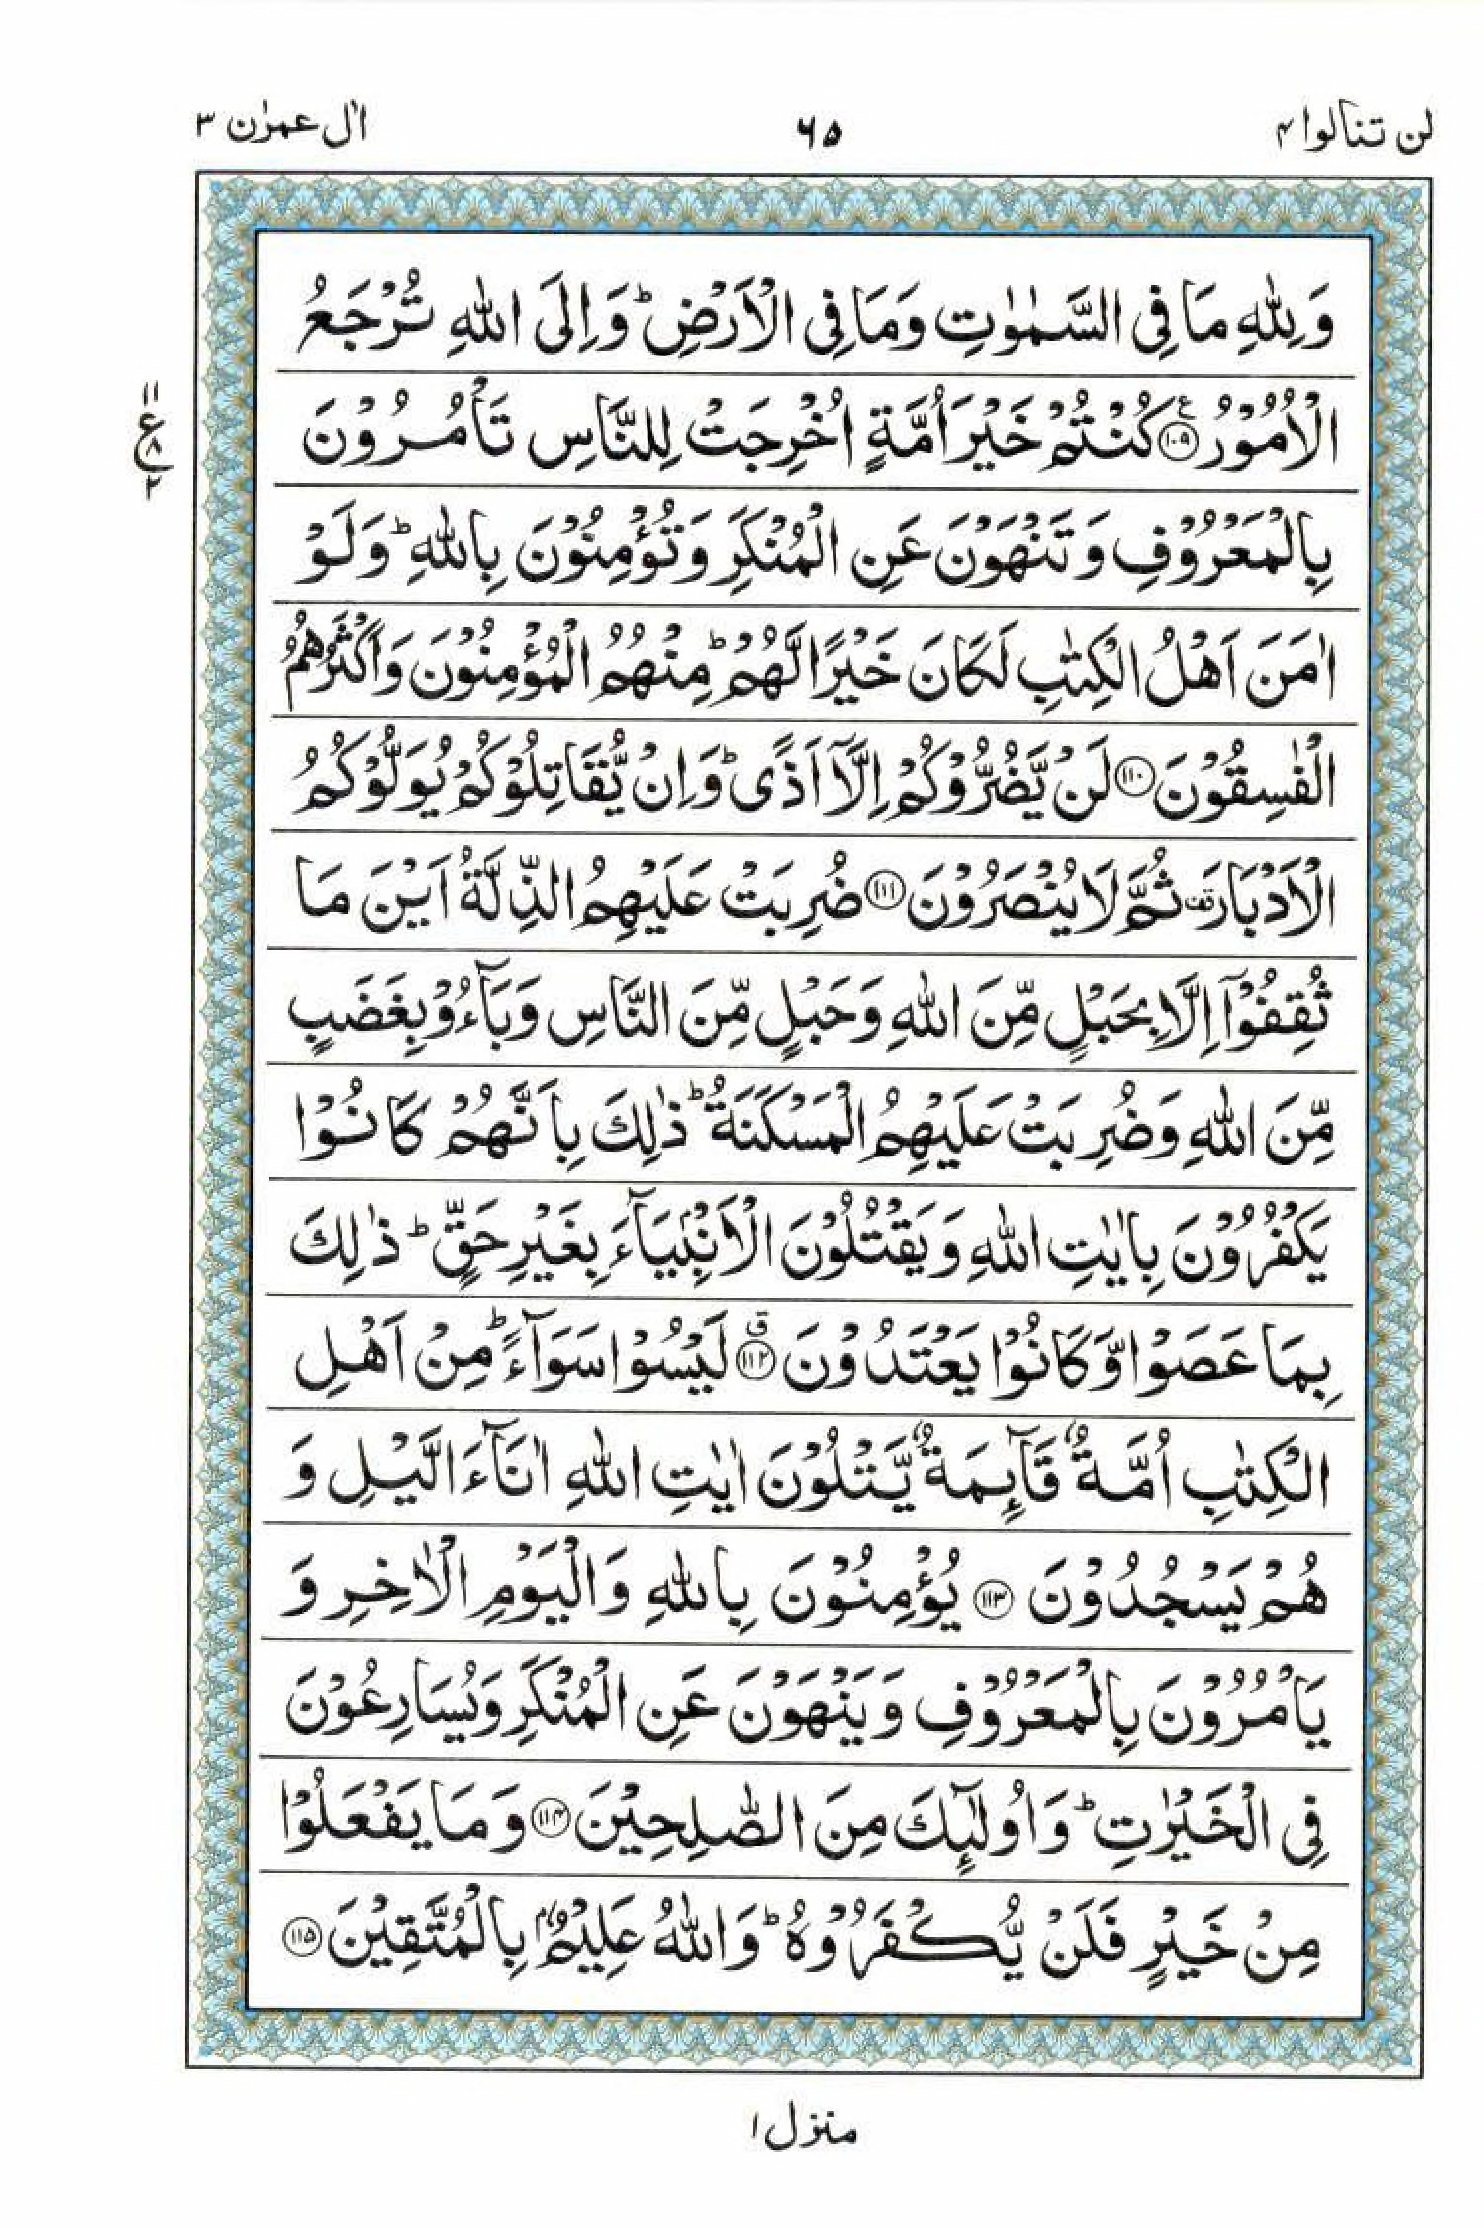 لن تنالوا ۴
۶۵
اٰل عمرٰن ۳
وَلِلّٰهِ مَا فِی السَّمٰوٰتِ وَمَا فِی الْاَرْضِ ؕ وَاِلَی اللّٰهِ تُرْجَعُ
الْاُمُوْرُ ۧ‏﴿۱۰۹﴾ كُنْتُمْ خَیْرَ اُمَّةٍ اُخْرِجَتْ لِلنَّاسِ تَاْمُرُوْنَ
بِالْمَعْرُوْفِ وَتَنْهَوْنَ عَنِ الْمُنْكَرِ وَتُؤْمِنُوْنَ بِاللّٰهِ ؕ وَلَوْ
اٰمَنَ اَهْلُ الْكِتٰبِ لَكَانَ خَیْرًا لَّهُمْ ؕ مِنْهُمُ الْمُؤْمِنُوْنَ وَاَكْثَرُهُمُ
الْفٰسِقُوْنَ ﴿۱۱۰﴾ لَنْ یَّضُرُّوْكُمْ اِلَّاۤ اَذًی ؕ وَاِنْ یُّقَاتِلُوْكُمْ یُوَلُّوْكُمُ
الْاَدْبَارَ قف ثُمَّ لَا یُنْصَرُوْنَ ﴿۱۱۱﴾ ضُرِبَتْ عَلَیْهِمُ الذِّلَّةُ اَیْنَ مَا
ثُقِفُوْۤا اِلَّا بِحَبْلٍ مِّنَ اللّٰهِ وَحَبْلٍ مِّنَ النَّاسِ وَبَآءُوْ بِغَضَبٍ
مِّنَ اللّٰهِ وَضُرِبَتْ عَلَیْهِمُ الْمَسْكَنَةُ ؕ ذٰلِكَ بِاَنَّهُمْ كَانُوْا
یَكْفُرُوْنَ بِاٰیٰتِ اللّٰهِ وَیَقْتُلُوْنَ الْاَنْۢبِیَآءَ بِغَیْرِ حَقٍّ ؕ ذٰلِكَ
بِمَا عَصَوْا وَّكَانُوْا یَعْتَدُوْنَ ق ﴿۱۱۲﴾ لَیْسُوْا سَوَآءً ؕ مِنْ اَهْلِ
الْكِتٰبِ اُمَّةٌ قَآىِٕمَةٌ یَّتْلُوْنَ اٰیٰتِ اللّٰهِ اٰنَآءَ الَّیْلِ وَ
هُمْ یَسْجُدُوْنَ ﴿۱۱۳﴾ یُؤْمِنُوْنَ بِاللّٰهِ وَالْیَوْمِ الْاٰخِرِ وَ
یَاْمُرُوْنَ بِالْمَعْرُوْفِ وَیَنْهَوْنَ عَنِ الْمُنْكَرِ وَیُسَارِعُوْنَ
فِی الْخَیْرٰتِ ؕ وَاُولٰٓىِٕكَ مِنَ الصّٰلِحِیْنَ ﴿۱۱۴﴾ وَمَا یَفْعَلُوْا
مِنْ خَیْرٍ فَلَنْ یُّكْفَرُوْهُ ؕ وَاللّٰهُ عَلِیْمٌۢ بِالْمُتَّقِیْنَ ﴿۱۱۵﴾
۱۱
ع ۸
۲
منزل ۱